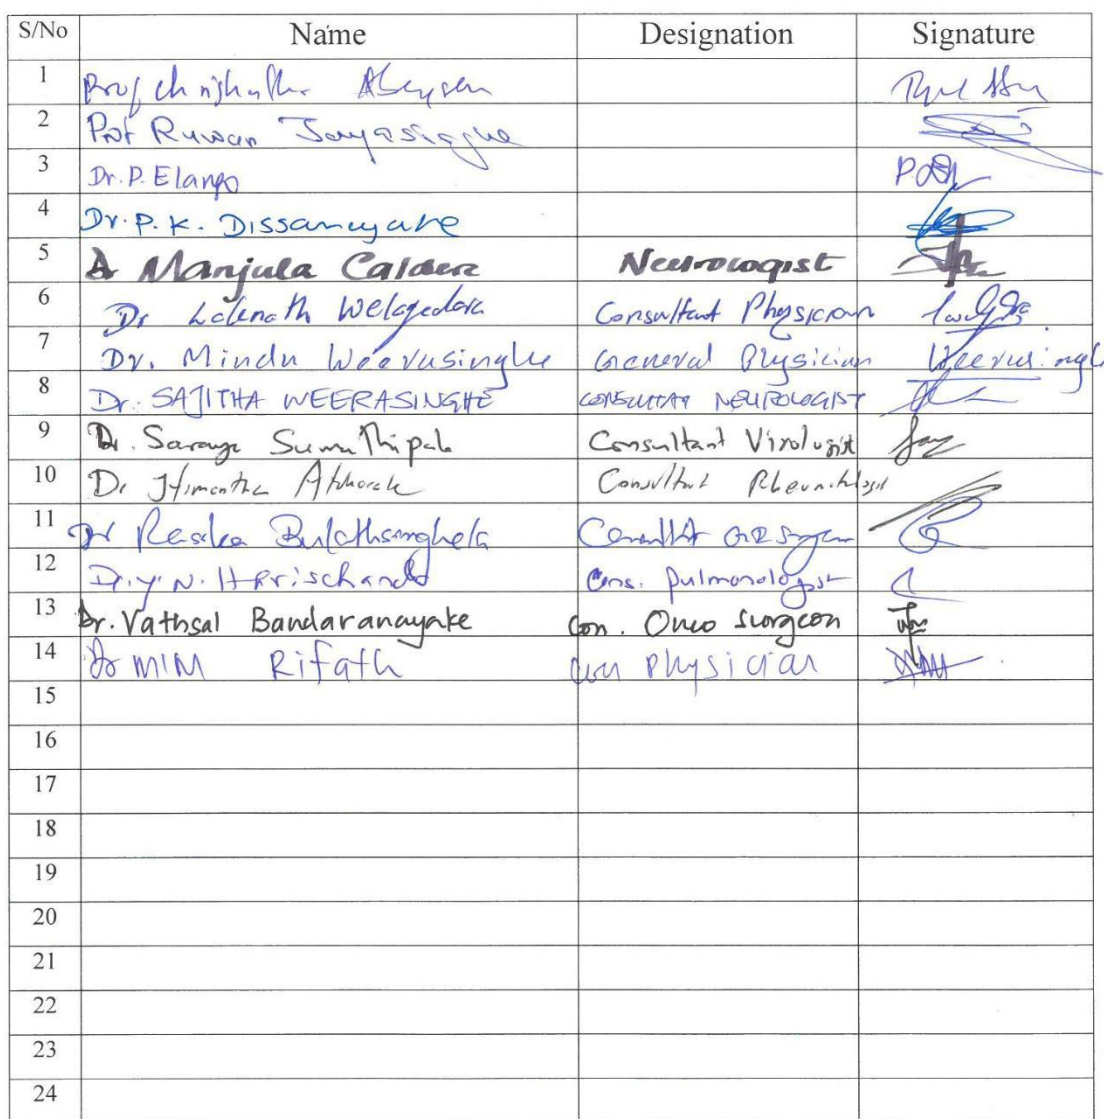 S/No Name Designation Signature
1 Prof
2 Prof Ruwan Jayasinghe
3 Dr. P. Elango
4 Dr. P. K. Dissanayake
5 Manjula Caldera Neurologist
6 Dr Lalinath Welagedara Consultant Physician
7 Dr. Mindu Weerasinghe General Physician Weerasingh
8 Dr. SAJITHA WEERASINGHE CONSULTAT NEUROLOGIST
9 Dr. Saranga Sumathipala Consultant Virologist
10 Dr Himantha Consultant Rheumatologist
11 Dr Bulathsinghela
12 Dr. Y. N. Harischandra Cons. pulmonologist
13 Dr. Vathsal Bandaranayake Con. Onco Surgeon
14 Dr MIM Rifath con physician
15
16
17
18
19
20
21
22
23
24